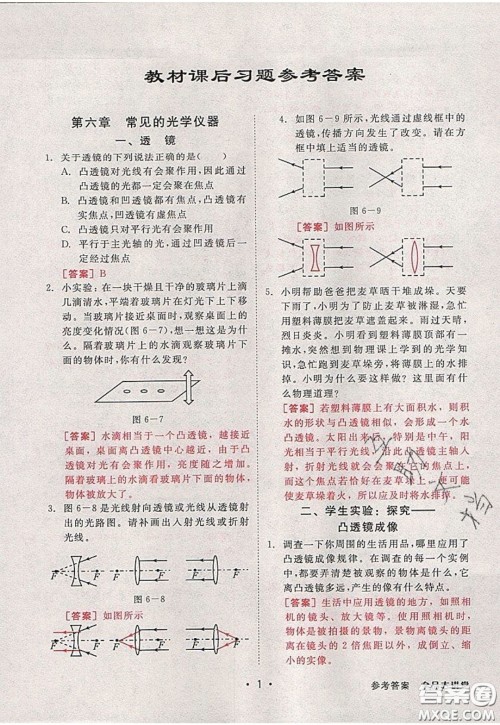 教材课后习题参考答案
第六章 常见的光学仪器
一、透 镜
1. 关于透镜的下列说法正确的是( )
A. 凸透镜对光线有会聚作用，因此通过凸透镜的光都一定会聚在焦点
B. 凸透镜和凹透镜都有焦点，但凸透镜的焦点实，凹透镜的焦点虚
C. 凸透镜只对平行光有会聚作用
D. 平行于主光轴的光，通过凹透镜后一定经过焦点
[答案] B
2. 小实验：在一块干燥且干净的玻璃片上滴几滴清水，平端着玻璃片在灯光下上下移动。当玻璃片接近桌面时，观察桌面上的亮度变化情况(图6-7)，想一想这是为什么。隔着玻璃片上的水滴观察玻璃片下面的物体时，你有什么发现?
图6-7
[答案] 水滴相当于一个凸透镜，越接近桌面，桌面离凸透镜中心越近，由于凸透镜对光有会聚作用，亮度随之增强。隔着玻璃片上的水滴观察玻璃片下面的物体，物体被放大了。
3. 图6-8是光线射向透镜或光线从透镜射出的光路图。请补画出入射光线或折射光线。
F F F F F F
图6-8
[答案] 如图所示
F F F F F F
4. 如图6-9所示，光线通过虚线框中的透镜，传播方向发生了改变。请在方框中填上适当的透镜。
图6-9
[答案] 如图所示
5. 小明帮助爸爸把麦草晒干堆成垛。天下雨了，小明为了防止麦草被雨水淋湿，急忙用塑料薄膜把麦草遮盖起来。雨过天晴，烈日炎炎。小明看到塑料薄膜顶部有一摊水，突然想到物理课上学到的光学知识，急忙跑到麦草垛旁，将薄膜上的积水排掉。小明为什么要这样做? 这里面有什么物理道理?
[答案] 若塑料薄膜上有大面积积水，则积水的形状与凸透镜相似，会形成一个水凸透镜。太阳出来后，特别是中午，太阳光与地面垂直，沿此水凸透镜主轴入射，折射后就会会聚到它的焦点上，而这个焦点恰好在麦草上，就可能使麦草垛着火，所以应及时将水排掉。
二、学生实验：探究——
凸透镜成像
1. 调查一下你周围的生活用品，哪里应用了凸透镜成像规律。在调查的每一个实例中，都要弄清楚被观察的物体是什么，它离凸透镜多远，产生的像有什么特点。
[答案] 生活中应用透镜的地方，如照相机的镜头、放大镜等。使用照相机拍照时，物体是被拍摄的景物，景物离镜头的距离在镜头的2倍焦距以外，成倒立、缩小的实像。
· 1 ·
参考答案
答案
MXQE.COM